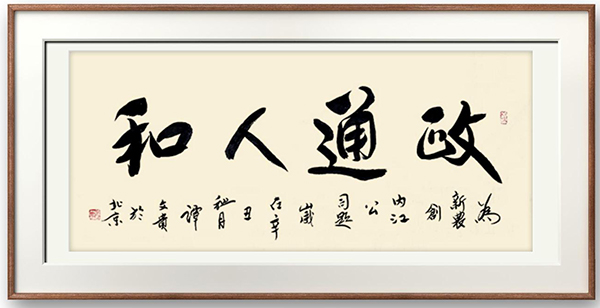 政通人和
為新農創内江公司題歲在辛丑秋月譚文貴於北京